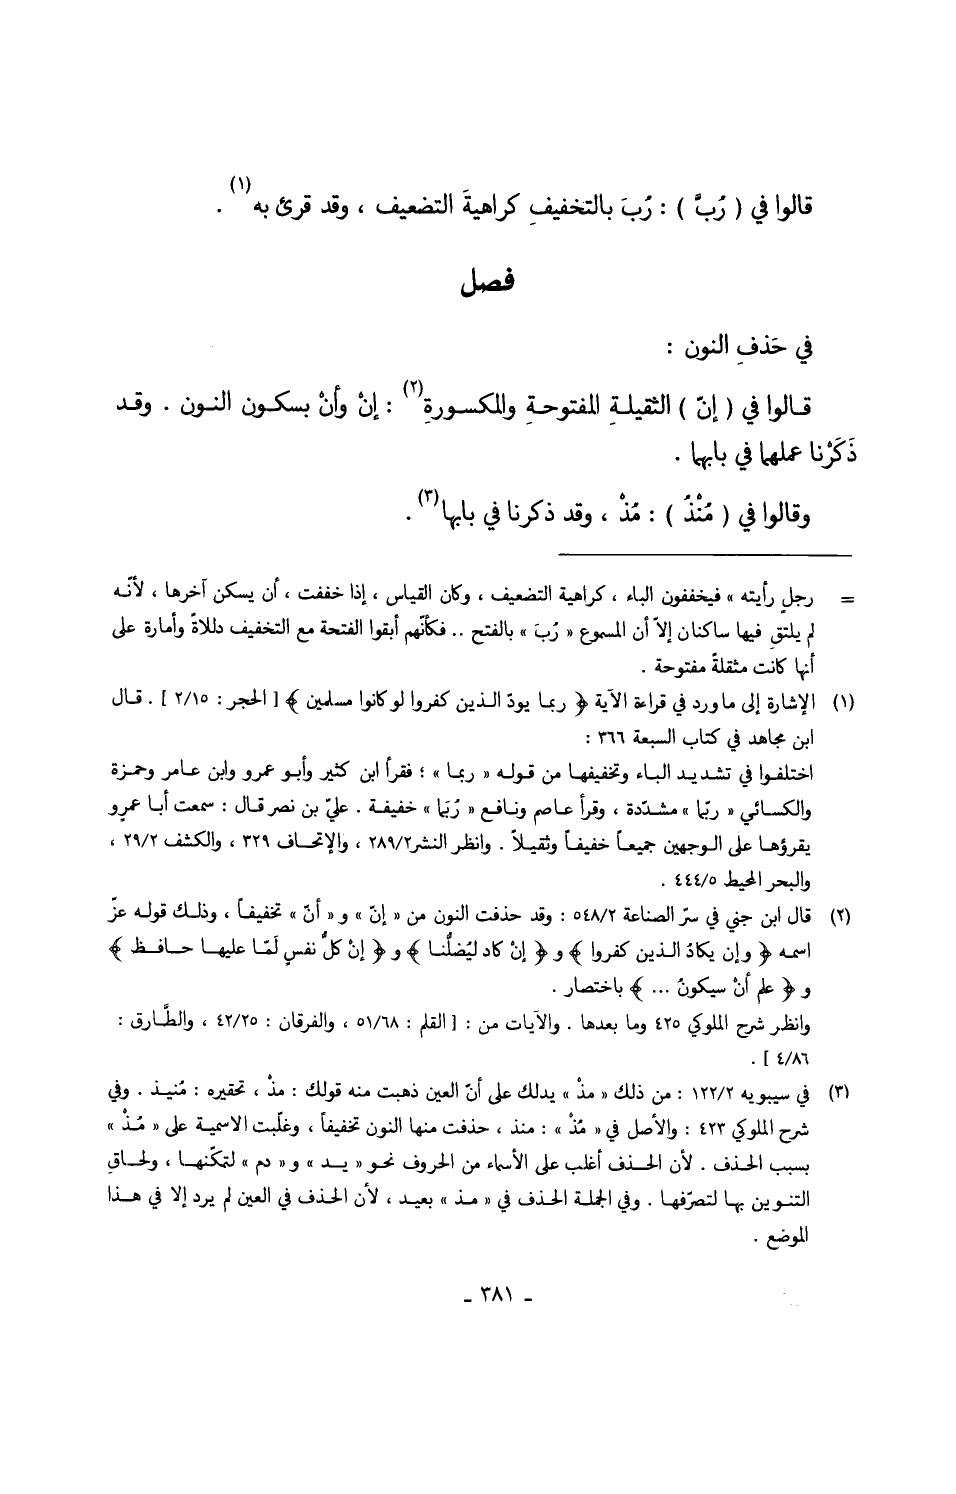 قالوا في ( رُبَّ ) : رُبَ بالتخفيفِ كراهيةَ التضعيف ، وقد قرئ به(١) .
فصل
في حَذفِ النون :
قالوا في ( إنّ ) الثقيلةِ المفتوحةِ والمكسورةِ(٢) : إنْ وأنْ بسكون النون . وقد
ذَكَرْنا عملها في بابها .
وقالوا في ( مُنْذُ ) : مُذْ ، وقد ذكرنا في بابها(٣) .
= رجلٍ رأيته » فيخففون الباء ، كراهية التضعيف ، وكان القياس ، إذا خففت ، أن يسكن آخرها ، لأنّه
لم يلتقِ فيها ساكنان إلاّ أن المسموع « رُبَ » بالفتح .. فكأنّهم أبقوا الفتحة مع التخفيف دلالةً وأمارة على
أنها كانت مثقلةً مفتوحة .
(١) الإشارة إلى ماورد في قراءة الآية ﴿ ربما يودّ الذين كفروا لو كانوا مسلمين ﴾ [ الحجر : ٢/١٥ ] . قال
ابن مجاهد في كتاب السبعة ٣٦٦ :
اختلفوا في تشديد الباء وتخفيفها من قوله « ربما » ؛ فقرأ ابن كثير وأبو عمرو وابن عامر وحمزة
والكسائي « ربّما » مشدّدة ، وقرأ عاصم ونافع « رُبَما » خفيفة . عليّ بن نصر قال : سمعت أبا عمرٍو
يقرؤها على الوجهين جميعاً خفيفاً وثقيلاً . وانظر النشر٢٨٩/٢ ، والإتحاف ٣٢٩ ، والكشف ٢٩/٢ ،
والبحر المحيط ٤٤٤/٥ .
(٢) قال ابن جني في سرّ الصناعة ٥٤٨/٢ : وقد حذفت النون من « إنّ » و « أنّ » تخفيفاً ، وذلك قوله عزّ
اسمه ﴿ وإن يكادُ الذين كفروا ﴾ و ﴿ إنْ كاد ليُضلُّنا ﴾ و ﴿ إنْ كلُّ نفسٍ لَمّا عليها حافظ ﴾
و ﴿ علم أنْ سيكونُ ... ﴾ باختصار .
وانظر شرح الملوكي ٤٢٥ وما بعدها . والآيات من : [ القلم : ٥١/٦٨ ، والفرقان : ٤٢/٢٥ ، والطَّارق :
٤/٨٦ ] .
(٣) في سيبويه ١٢٢/٢ : من ذلك « مذْ » يدلك على أنّ العين ذهبت منه قولك : مذْ ، تحقيره : مُنيذ . وفي
شرح الملوكي ٤٢٣ : والأصل في « مُذْ » : منذ ، حذفت منها النون تخفيفاً ، وغلّبت الاسمية على « مُذْ »
بسبب الحذف . لأن الحذف أغلب على الأسماء من الحروف نحو « يد » و « دم » لتمكّنها ، ولحاقِ
التنوين بها لتصرّفها . وفي الجملة الحذف في « مذ » بعيد ، لأن الحذف في العين لم يرد إلا في هذا
الموضع .
- ٣٨١ -